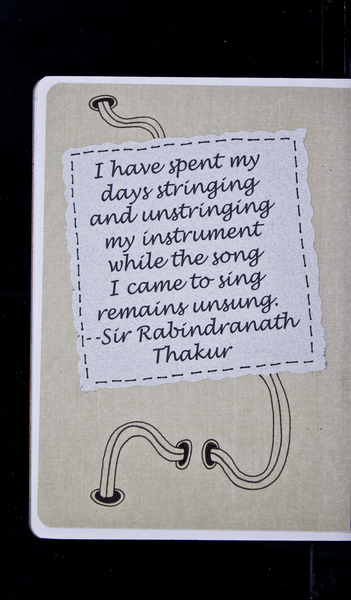 I have spent my
days stringing
and unstringing
my instrument
while the song
I came to sing
remains unsung.
--Sir Rabindranath
Thakur